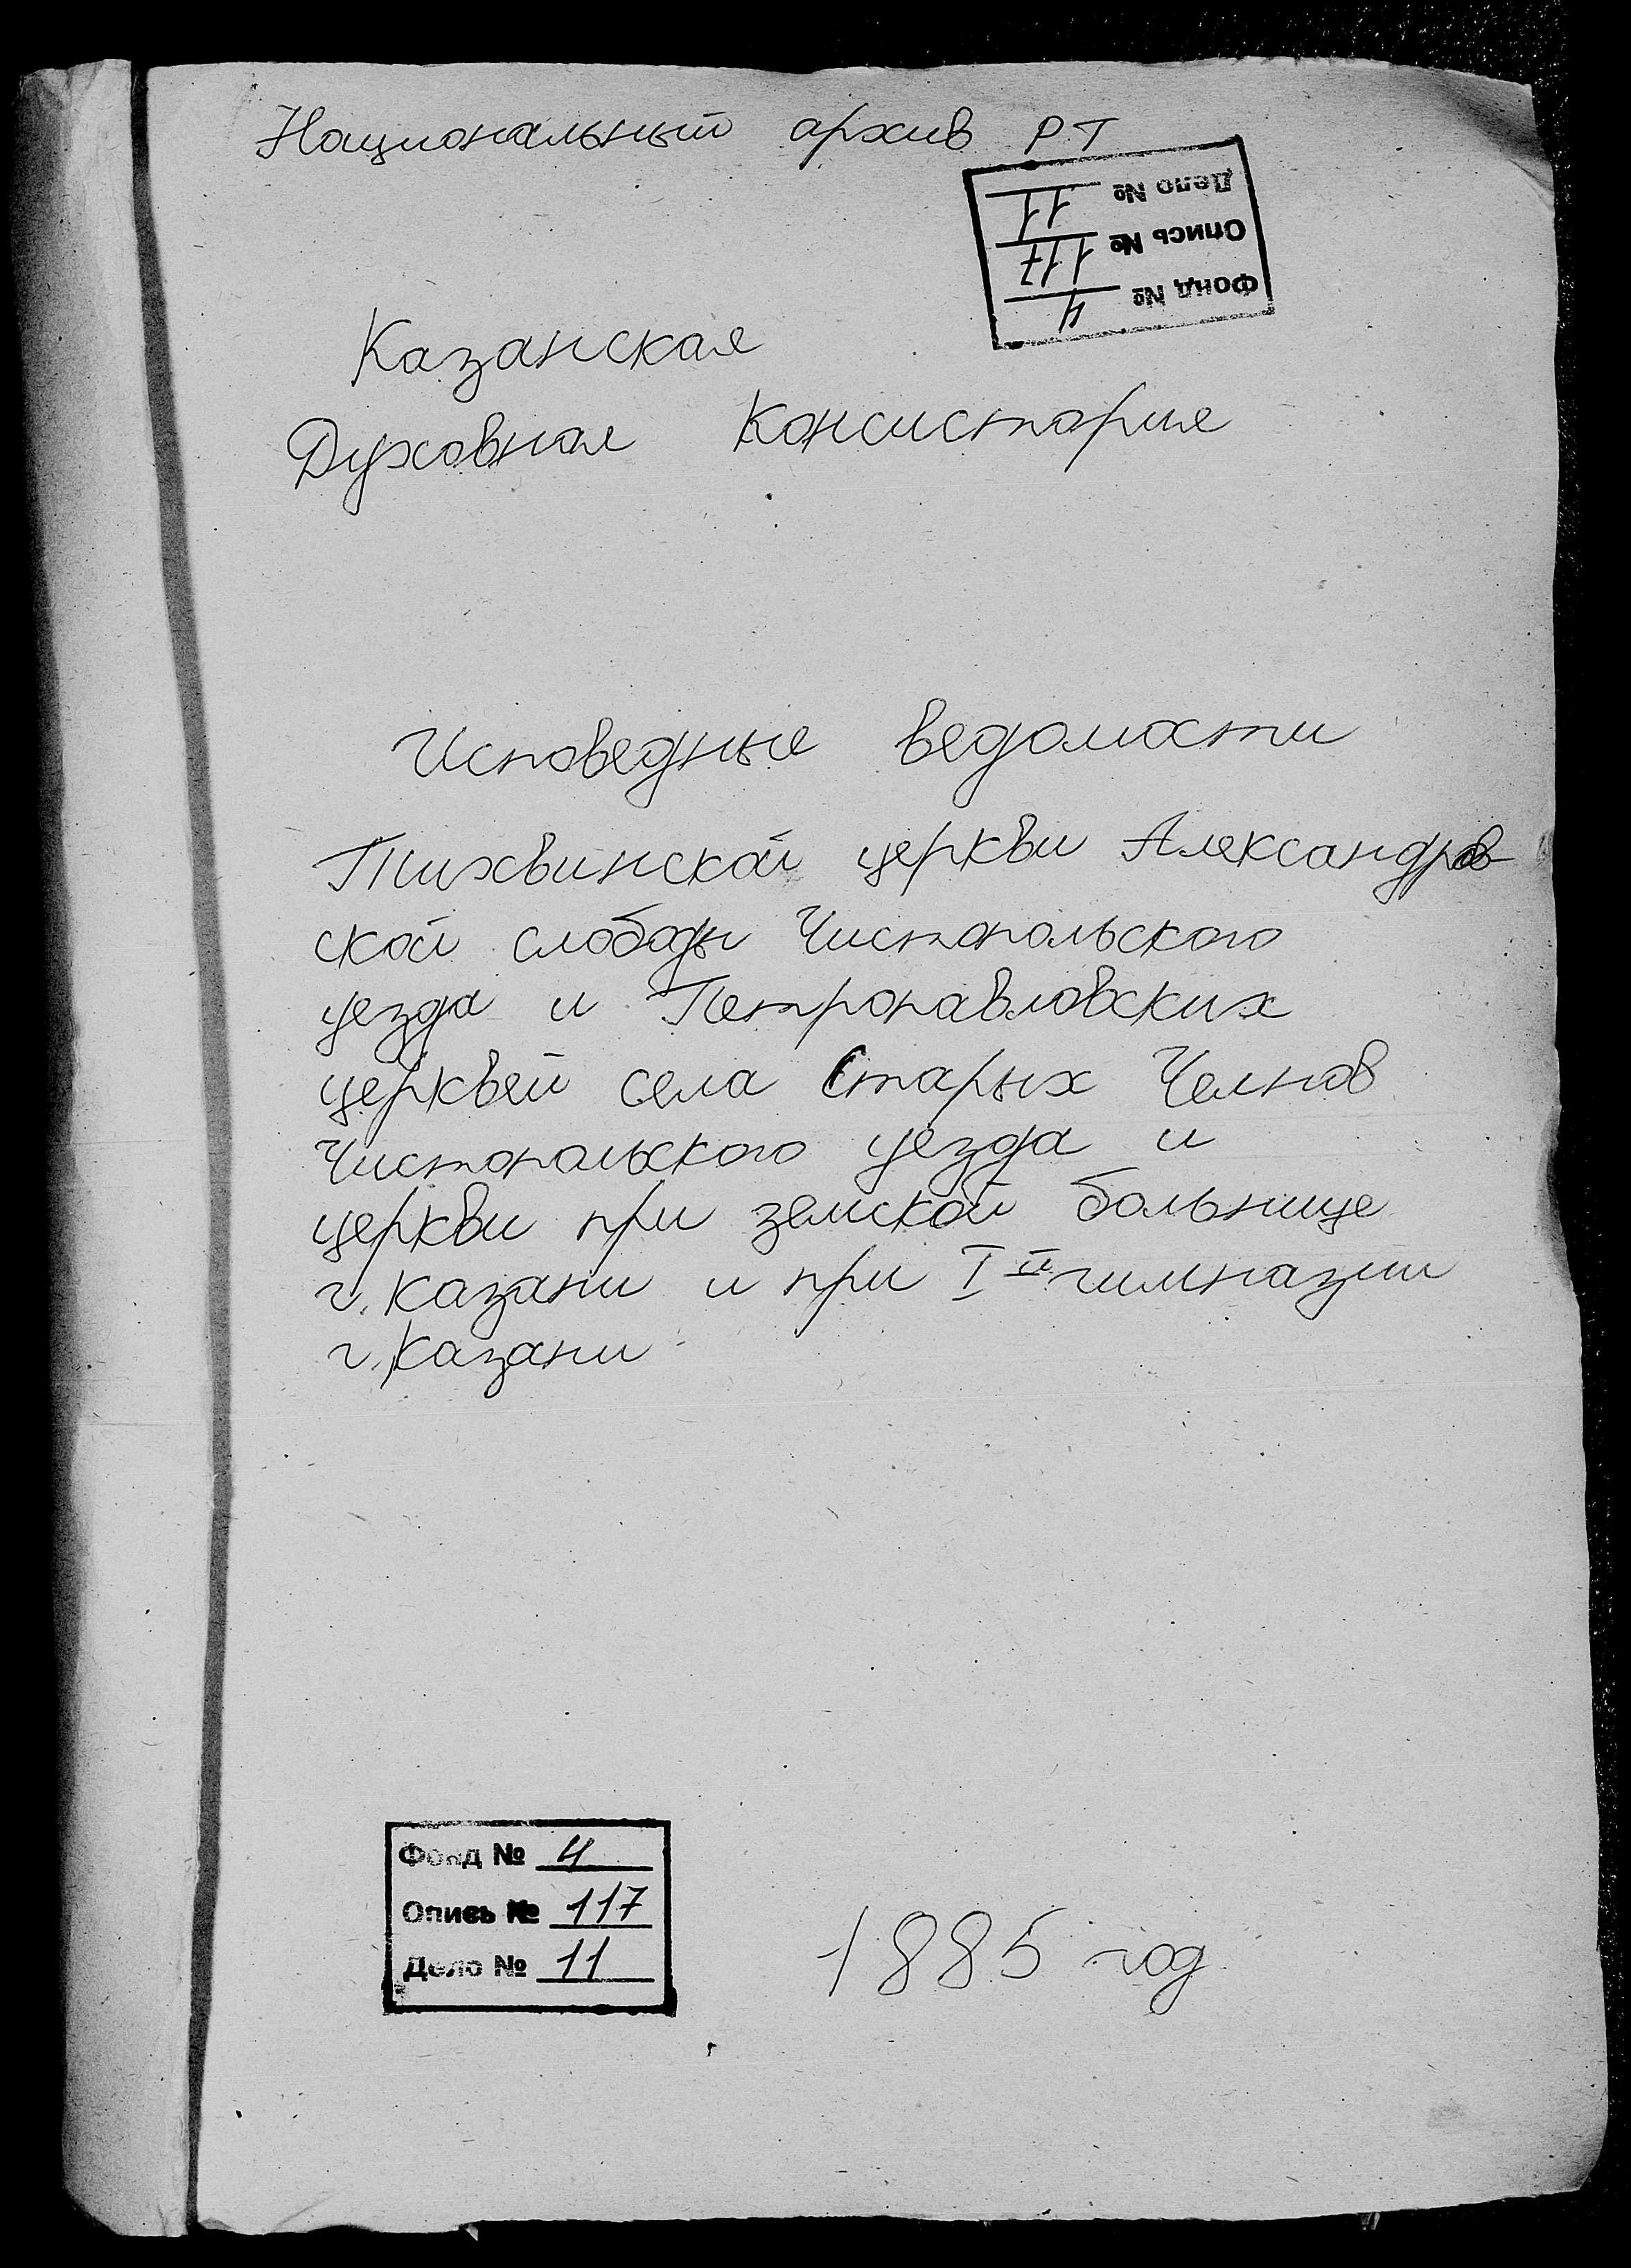 Национальный архив РТ
Дело № 11
Опись № 117
Фонд № 4
Казанская
Духовная Консистория
Исповедные ведомости
Тихвинской церкви Александров-
ской слободы Чистопольского
уезда и Петропавловских
церквей села Старых Челнов
Чистопольского уезда и
церкви при земской больнице
г. Казани и при I й гимназии
г. Казани
Фонд № 4
Опись № 117
Дело № 11
1885 год